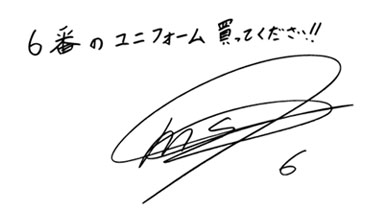 6番のユニフォーム買ってください!!
6